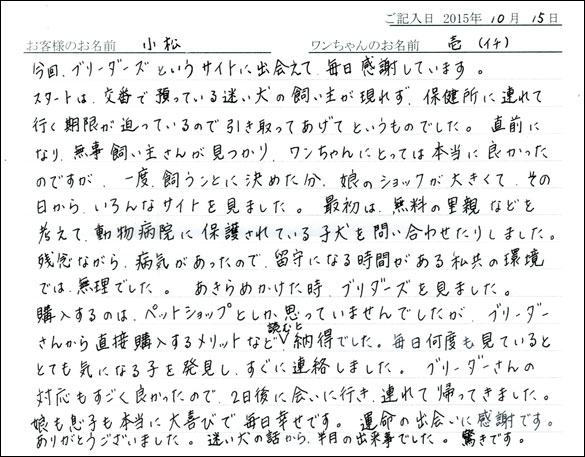 ご記入日 2015年 10月 15日
お客様のお名前 小松 ワンちゃんのお名前 壱(イチ)
今回、ブリーダーズというサイトに出会えて、毎日感謝しています。
スタートは、交番で預っている迷い犬の飼い主が現れず、保健所に連れて
行く期限が迫っているので引き取ってあげてというものでした。直前に
なり、無事飼い主さんが見つかり、ワンちゃんにとっては本当に良かった
のですが、一度、飼うことに決めた分、娘のショックが大きくて、その
日から、いろんなサイトを見ました。最初は、無料の里親などを
考えて、動物病院に保護されている子犬を問い合わせたりしました。
残念ながら、病気があったので、留守になる時間がある私共の環境
では、無理でした。あきらめかけた時、ブリダーズを見ました。
購入するのは、ペットショップとしか思っていませんでしたが、ブリーダー
さんから直接購入するメリットなど読むと納得でした。毎日何度も見ていると
とても気になる子を発見し、すぐに連絡しました。ブリーダーさんの
対応もすごく良かったので、2日後に会いに行き、連れて帰ってきました。
娘も息子も本当に大喜びで毎日幸せです。運命の出会いに感謝です。
ありがとうございました。迷い犬の話から、半月の出来事でした。驚きです。